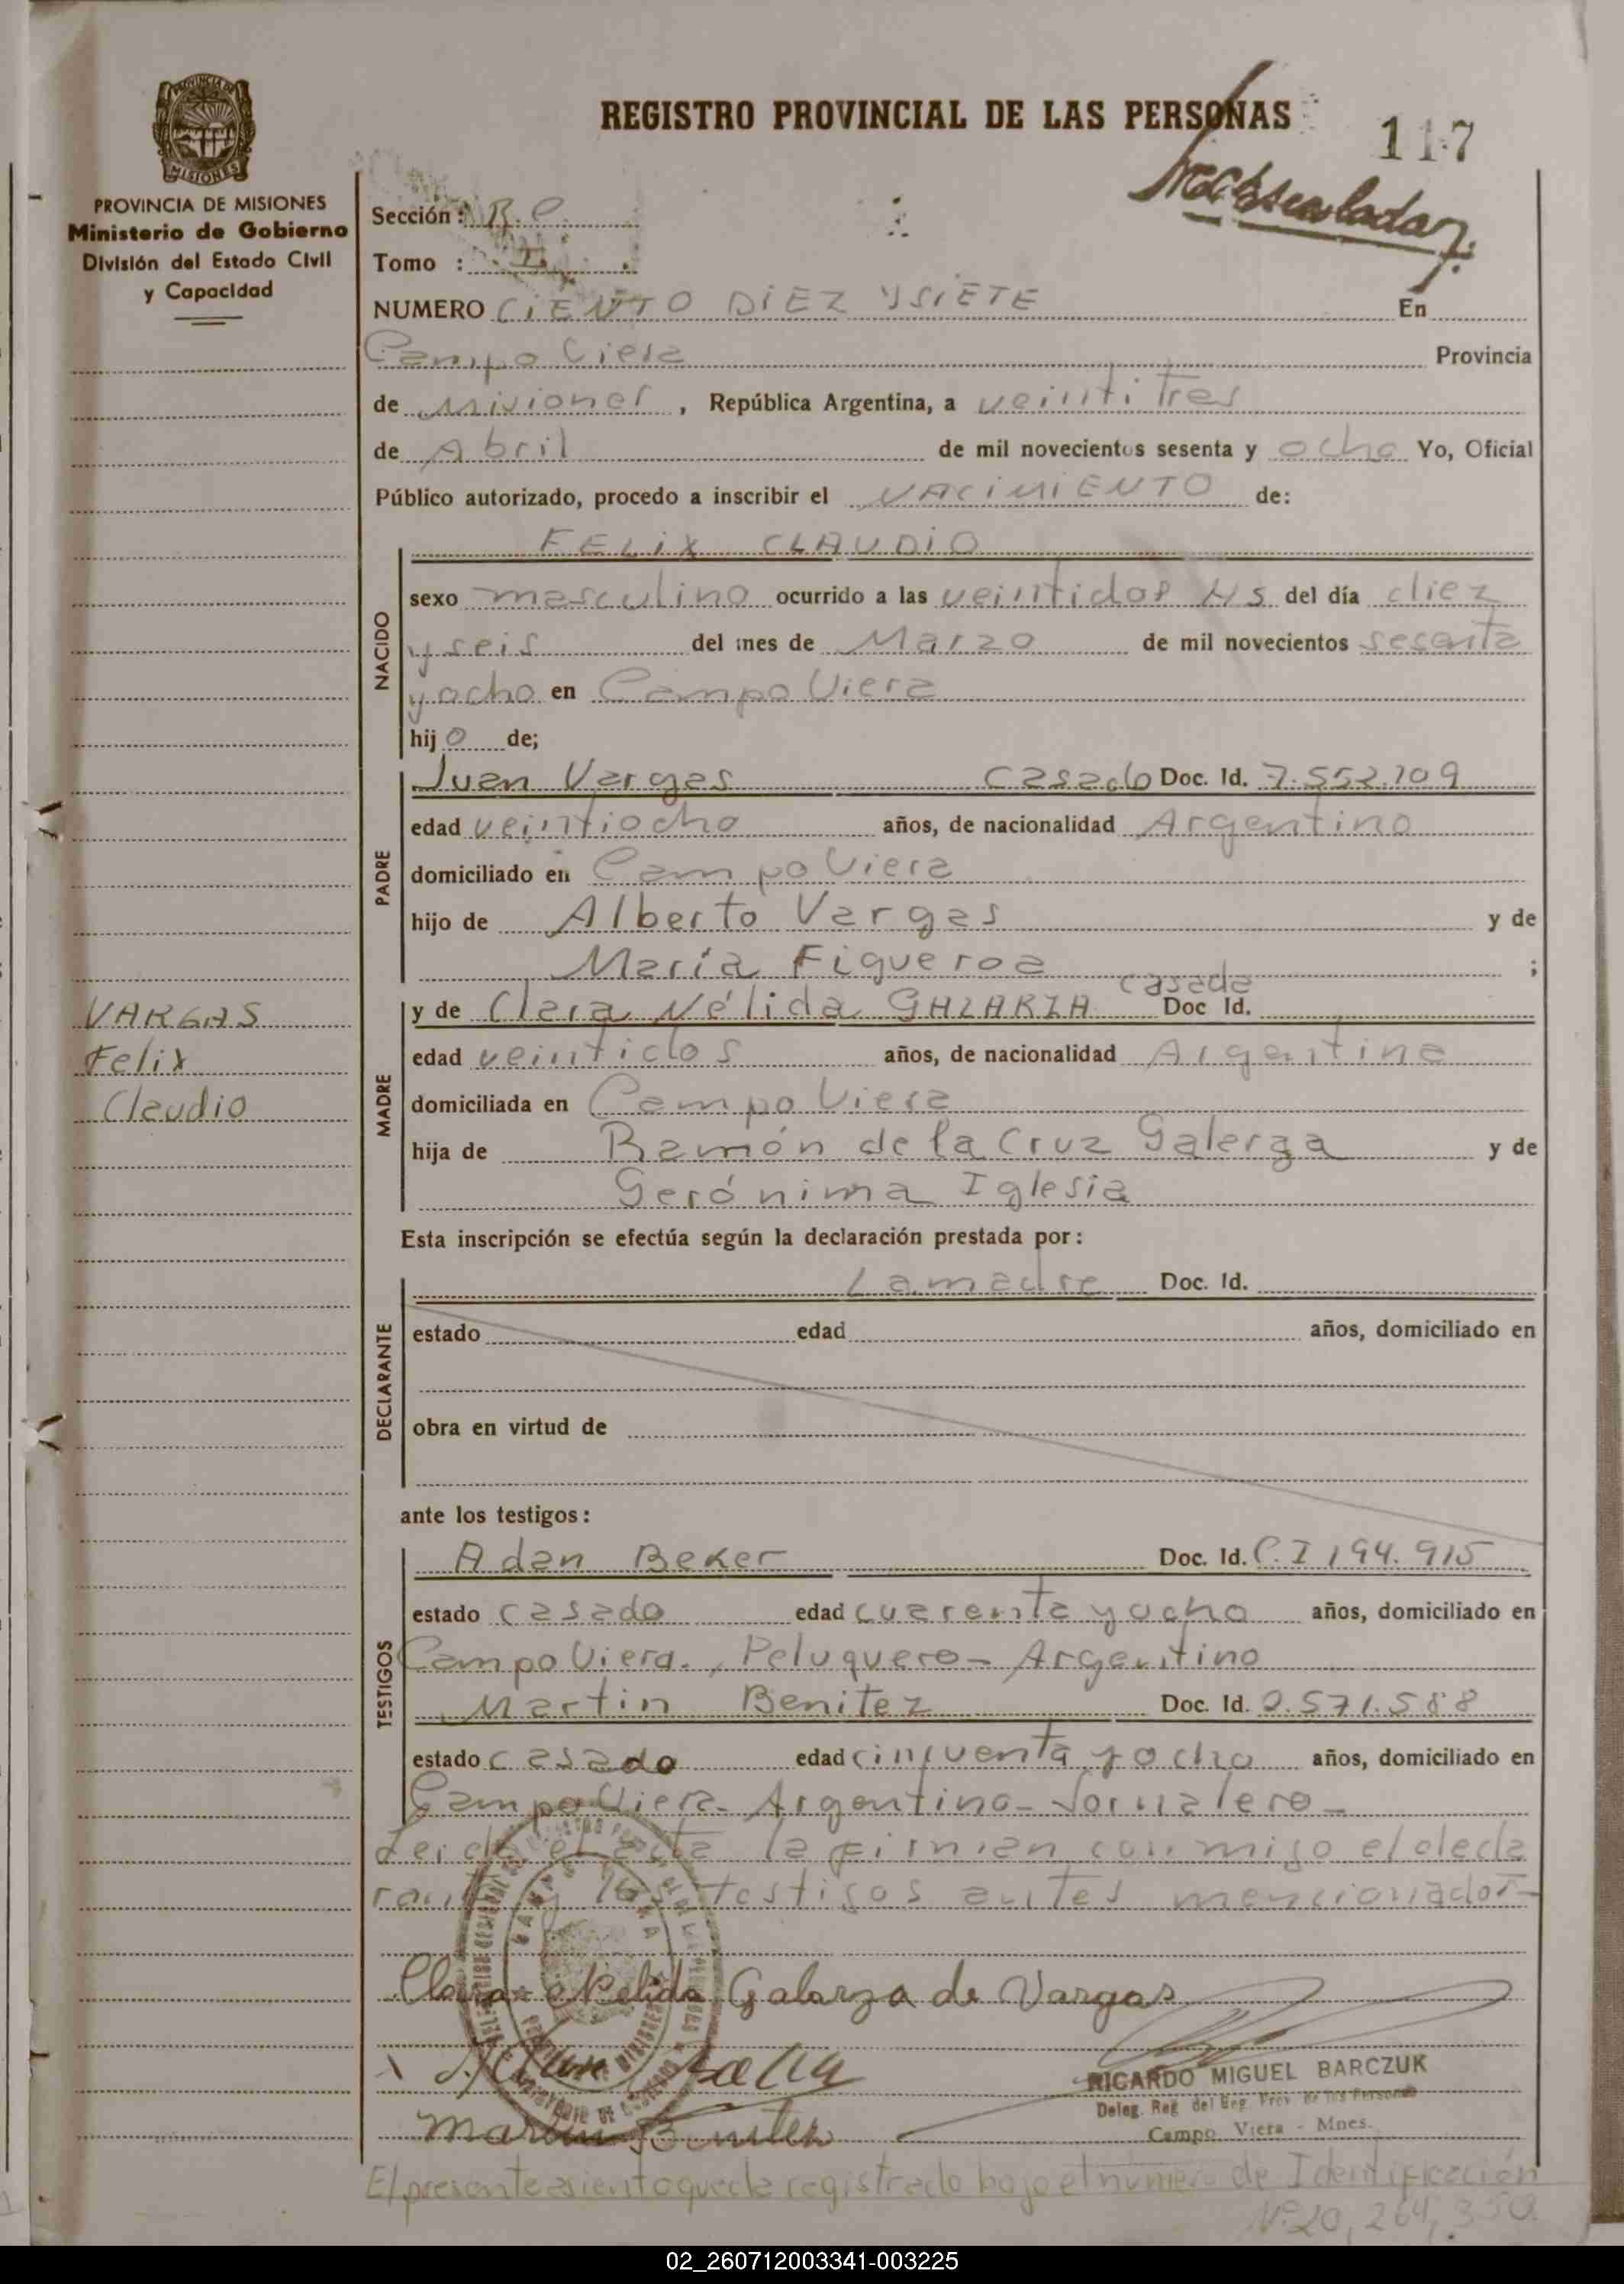 REGISTRO PROVINCIAL DE LAS PERSONAS
117
PROVINCIA DE MISIONES
MISIONES
PROVINCIA DE MISIONES
Ministerio de Gobierno
División del Estado Civil
y Capacidad
Sección:
Tomo : I
NUMERO CIENTO DIEZ Y SIETE En
Campo Viera Provincia
de Misiones, República Argentina, a veintitres
de Abril de mil novecientos sesenta y ocho Yo, Oficial
Público autorizado, procedo a inscribir el NACIMIENTO de:
FELIX CLAUDIO
NACIDO
sexo masculino ocurrido a las veintidos Hs del día diez
y seis del mes de Marzo de mil novecientos sesenta
y ocho en Campo Viera
hijo de;
PADRE
Juan Vargas casado Doc. Id. 7.552.109
edad veintiocho años, de nacionalidad Argentino
domiciliado en Campo Viera
hijo de Alberto Vargas y de
María Figueroa ;
VARGAS
Felix
Claudio
MADRE
casada
y de Clara Nélida GALARZA Doc Id.
edad veintidos años, de nacionalidad Argentina
domiciliada en Campo Viera
hija de Ramón de la Cruz Galarza y de
Gerónima Iglesia
Esta inscripción se efectúa según la declaración prestada por:
DECLARANTE
La madre Doc. Id.
estado edad años, domiciliado en
obra en virtud de
ante los testigos:
TESTIGOS
Adan Beker Doc. Id. C.I 194.915
estado casado edad cuarenta y ocho años, domiciliado en
Campo Viera., Peluquero- Argentino
Martin Benitez Doc. Id. 2.571.588
estado casado edad cincuenta y ocho años, domiciliado en
Campo Viera- Argentino- Jornalero-
Leida el acta la firman conmigo el decla
rante y los testigos antes mencionados-
Clara Nelida Galarza de Vargas
Martin Benitez
RICARDO MIGUEL BARCZUK
Deleg. Reg. del Reg. Prov. de las Personas
Campo Viera - Mnes.
El presente asiento queda registrado bajo el número de Identificación
Nº 20,264,350
02_260712003341-003225